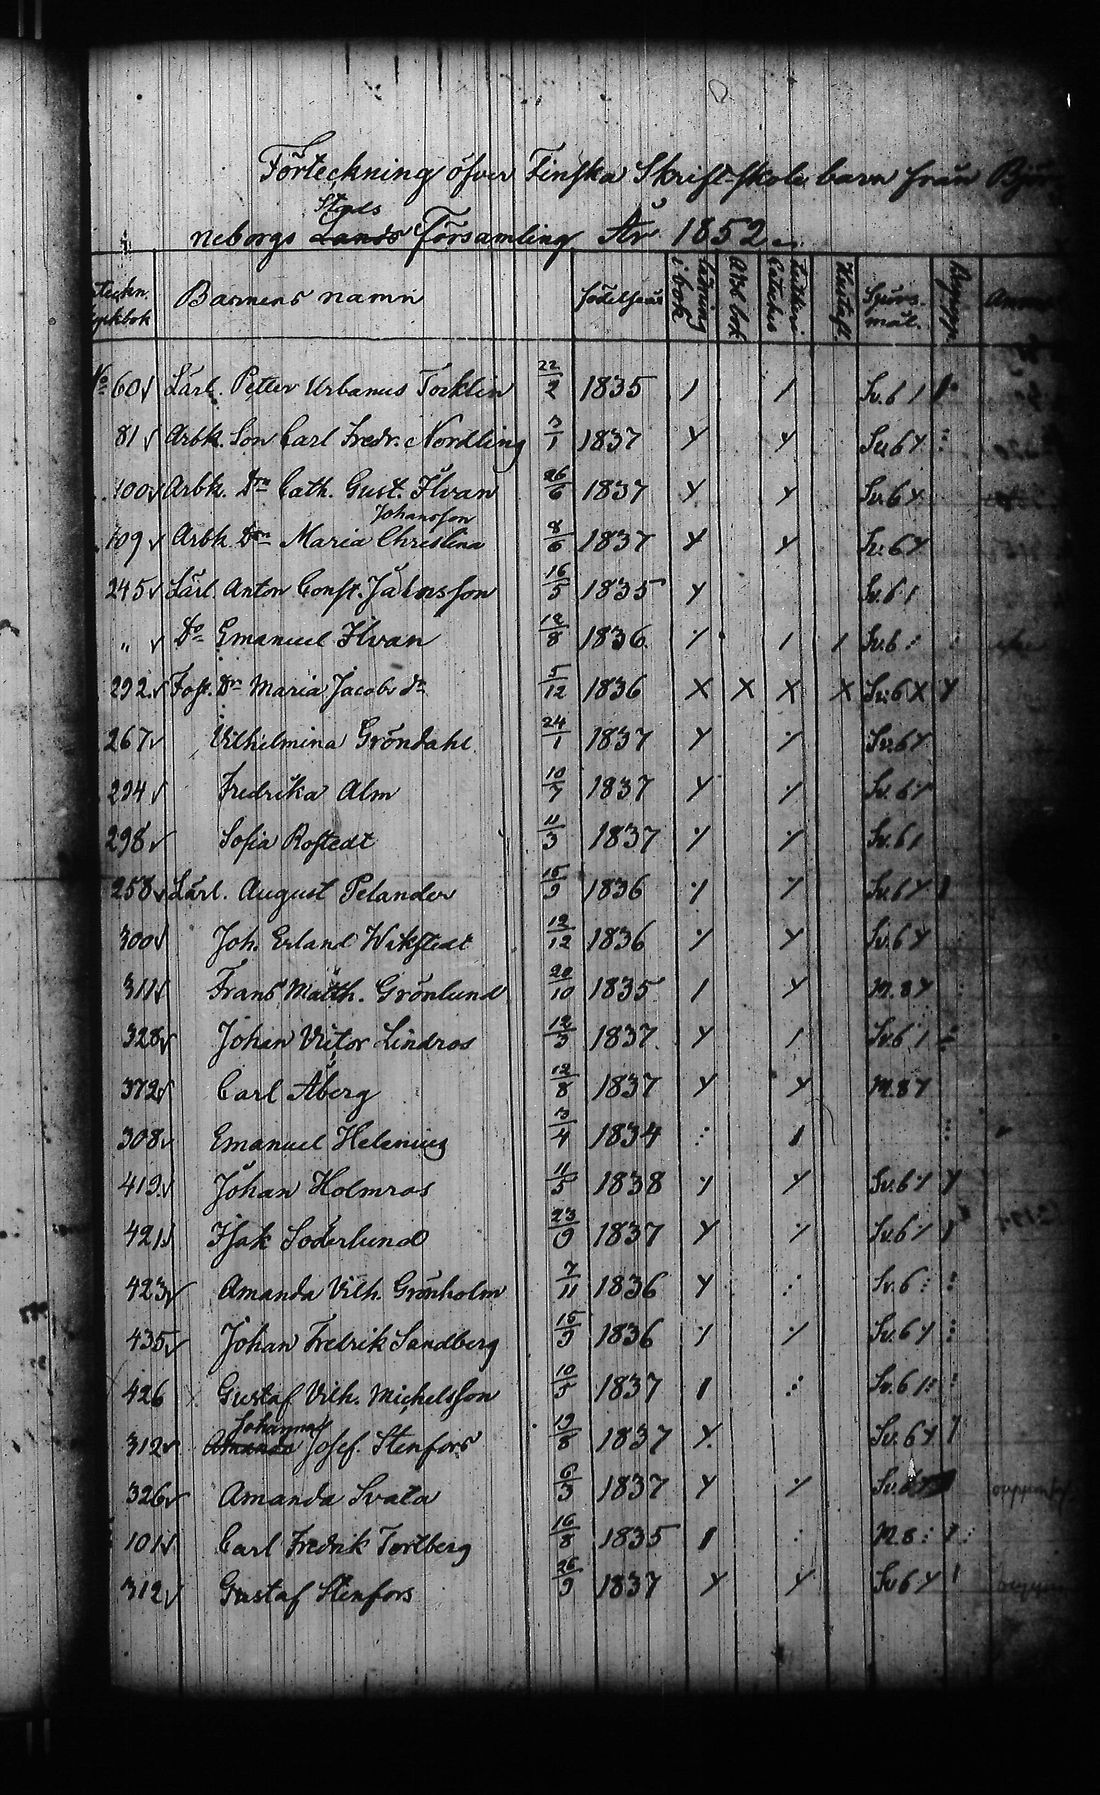 Förteckning öfver Finska Skriftskole barn från Björ
Stads
neborgs Lands Församling År 1852.
Barnens namn födelseår läsning i bok ABC bok Lutheri Cateches Hustafl. Spörs- mål. Begrepp Anm
No 60 Lärl. Petter Urbanus Torklin 22/2 1835 Sv. 6
81 Arbk. Son Carl Fredr. Nordling 3/1 1837 Sv. 6
100 Arbk. Dtr Cath. Gust. Ilvan 26/6 1837 Sv. 6
Johansson
109 Arbk. Dtr Maria Christina 8/6 1837 Sv. 6
245 Lärl. Anton Const. Jalmsson 16/5 1835 Sv. 6
" Do Emanuel Ilvan 12/8 1836 Sv. 6
292 Fost. Dr Maria Jacobs dr 5/12 1836 X X X X Sv. 6 X
267 Vilhelmina Gröndahl 24/1 1837 Sv. 6
294 Fredrika Alm 10/7 1837 Sv. 6
298 Sofia Rostedt 11/3 1837 Sv. 6
258 Lärl. August Pelander 15/9 1836 Sv. 6
300 Joh. Erland Wikstedt 12/12 1836 Sv. 6
311 Frans Matth. Grönlund 20/10 1835 M. 8
328 Johan Victor Lindros 12/3 1837 Sv. 6
372 Carl Åberg 12/8 1837 M. 8
308 Emanuel Helenius 3/4 1834
419 Johan Holmros 11/5 1838 Sv. 6
421 Isak Söderlund 23/9 1837 Sv. 6
423 Amanda Vilh. Grönholm 7/11 1836 Sv. 6
435 Johan Fredrik Sandberg 15/9 1836 Sv. 6
426 Gustaf Vilh. Michelsson 10/5 1837 Sv. 6
Johanna
312 Amanda Josef. Stenfors 19/8 1837 Sv. 6
326 Amanda Svata 6/3 1837 Sv. 6
101 Carl Fredrik Tortberg 16/8 1835 M. 8
312 Gustaf Stenfors 26/9 1837 Sv. 6